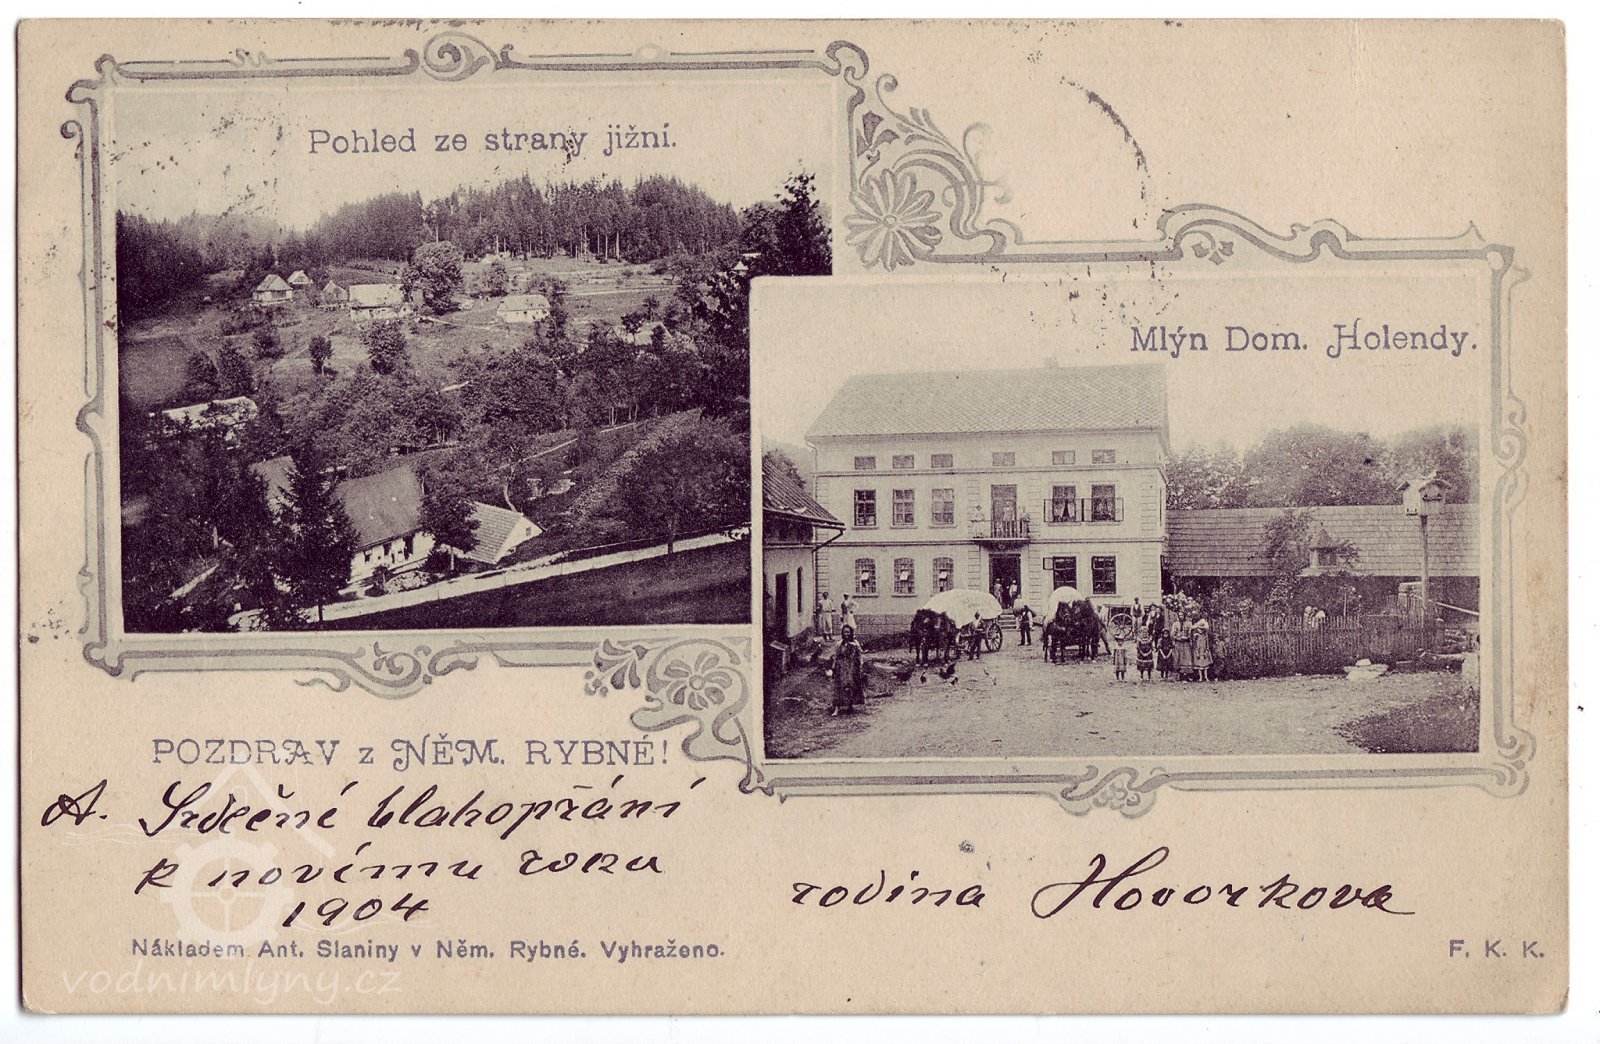 Pohled ze strany jižní.
Mlýn Dom. Holendy.
POZDRAV z NĚM. RYBNÉ!
A. Srdečné blahopřání
k novému roku
1904
rodina Hovorkova
Nákladem Ant. Slaniny v Něm. Rybné. Vyhraženo.
F. K. K.
vodnimlyny.cz